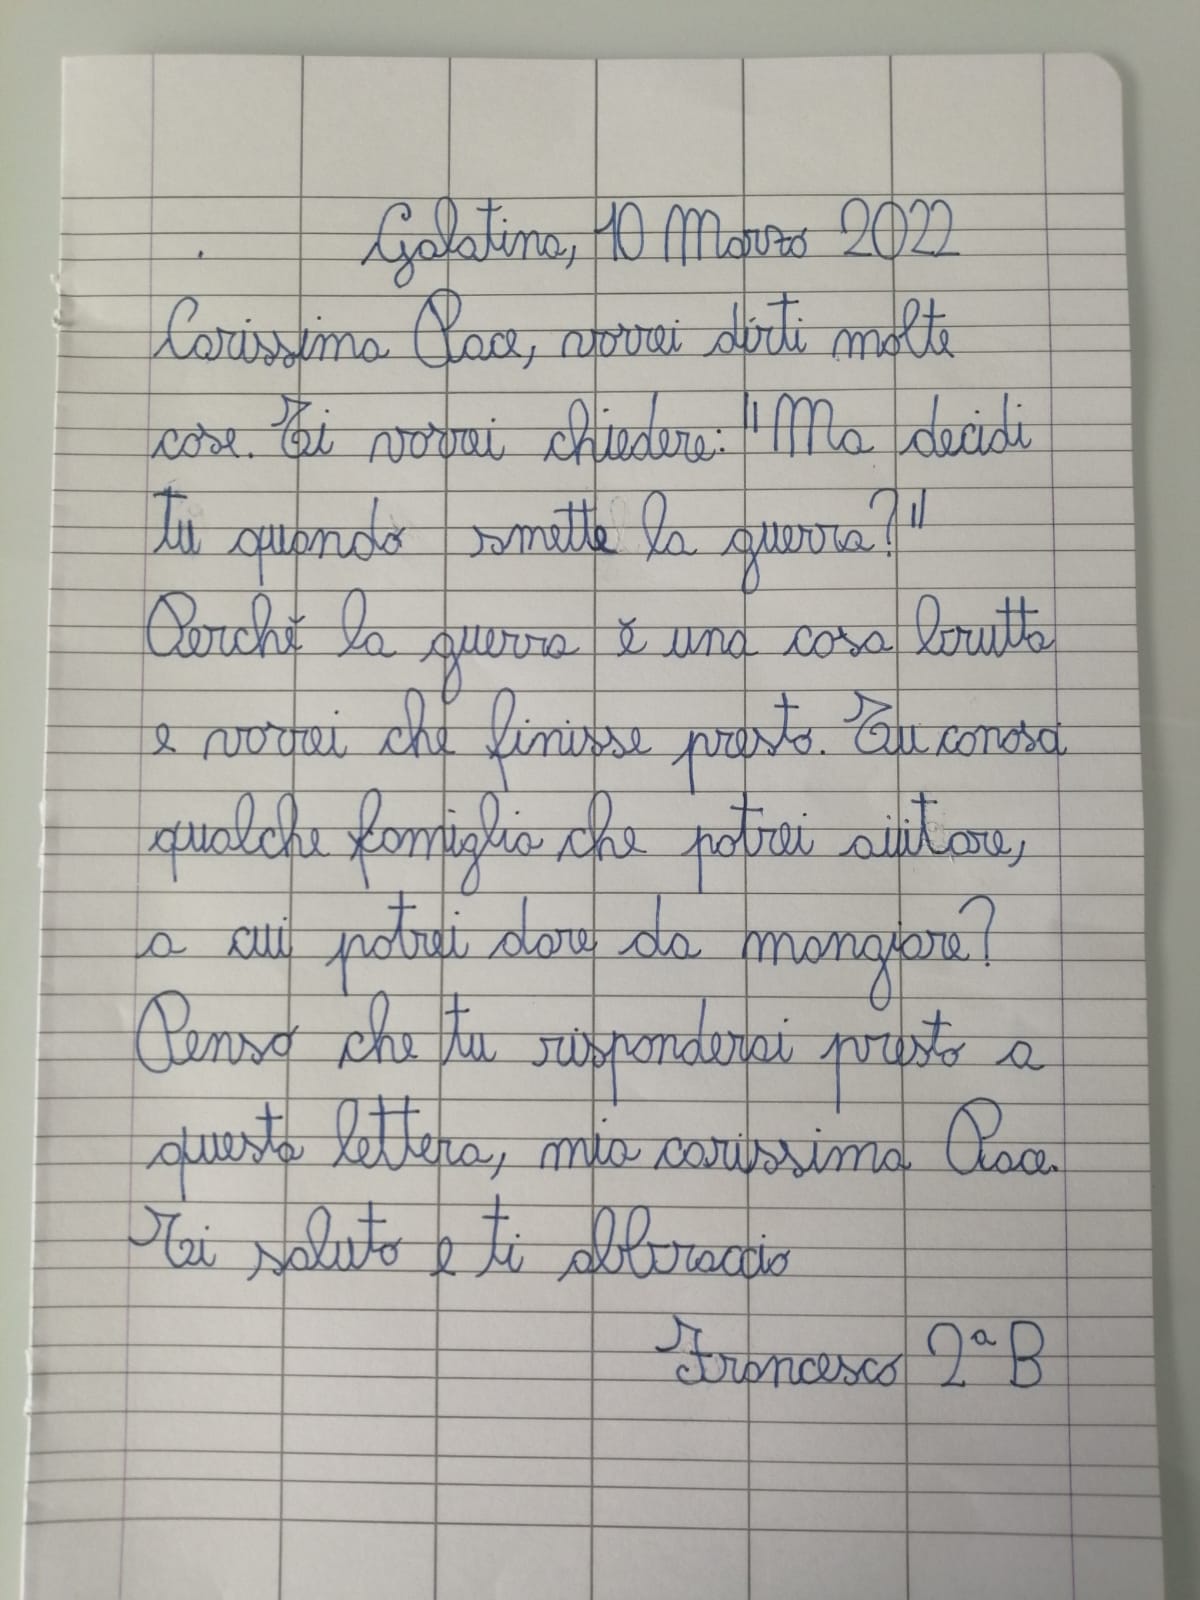 Galatina, 10 Marzo 2022
Carissima Pace, vorrei dirti molte
cose. Ti vorrei chiedere: "Ma decidi
tu quando smette la guerra?"
Perché la guerra è una cosa brutta
e vorrei che finisse presto. Tu conosci
qualche famiglia che potrei aiutare,
a cui potrei dare da mangiare?
Penso che tu risponderai presto a
questa lettera, mia carissima Pace.
Ti saluto e ti abbraccio
Francesco 2ª B